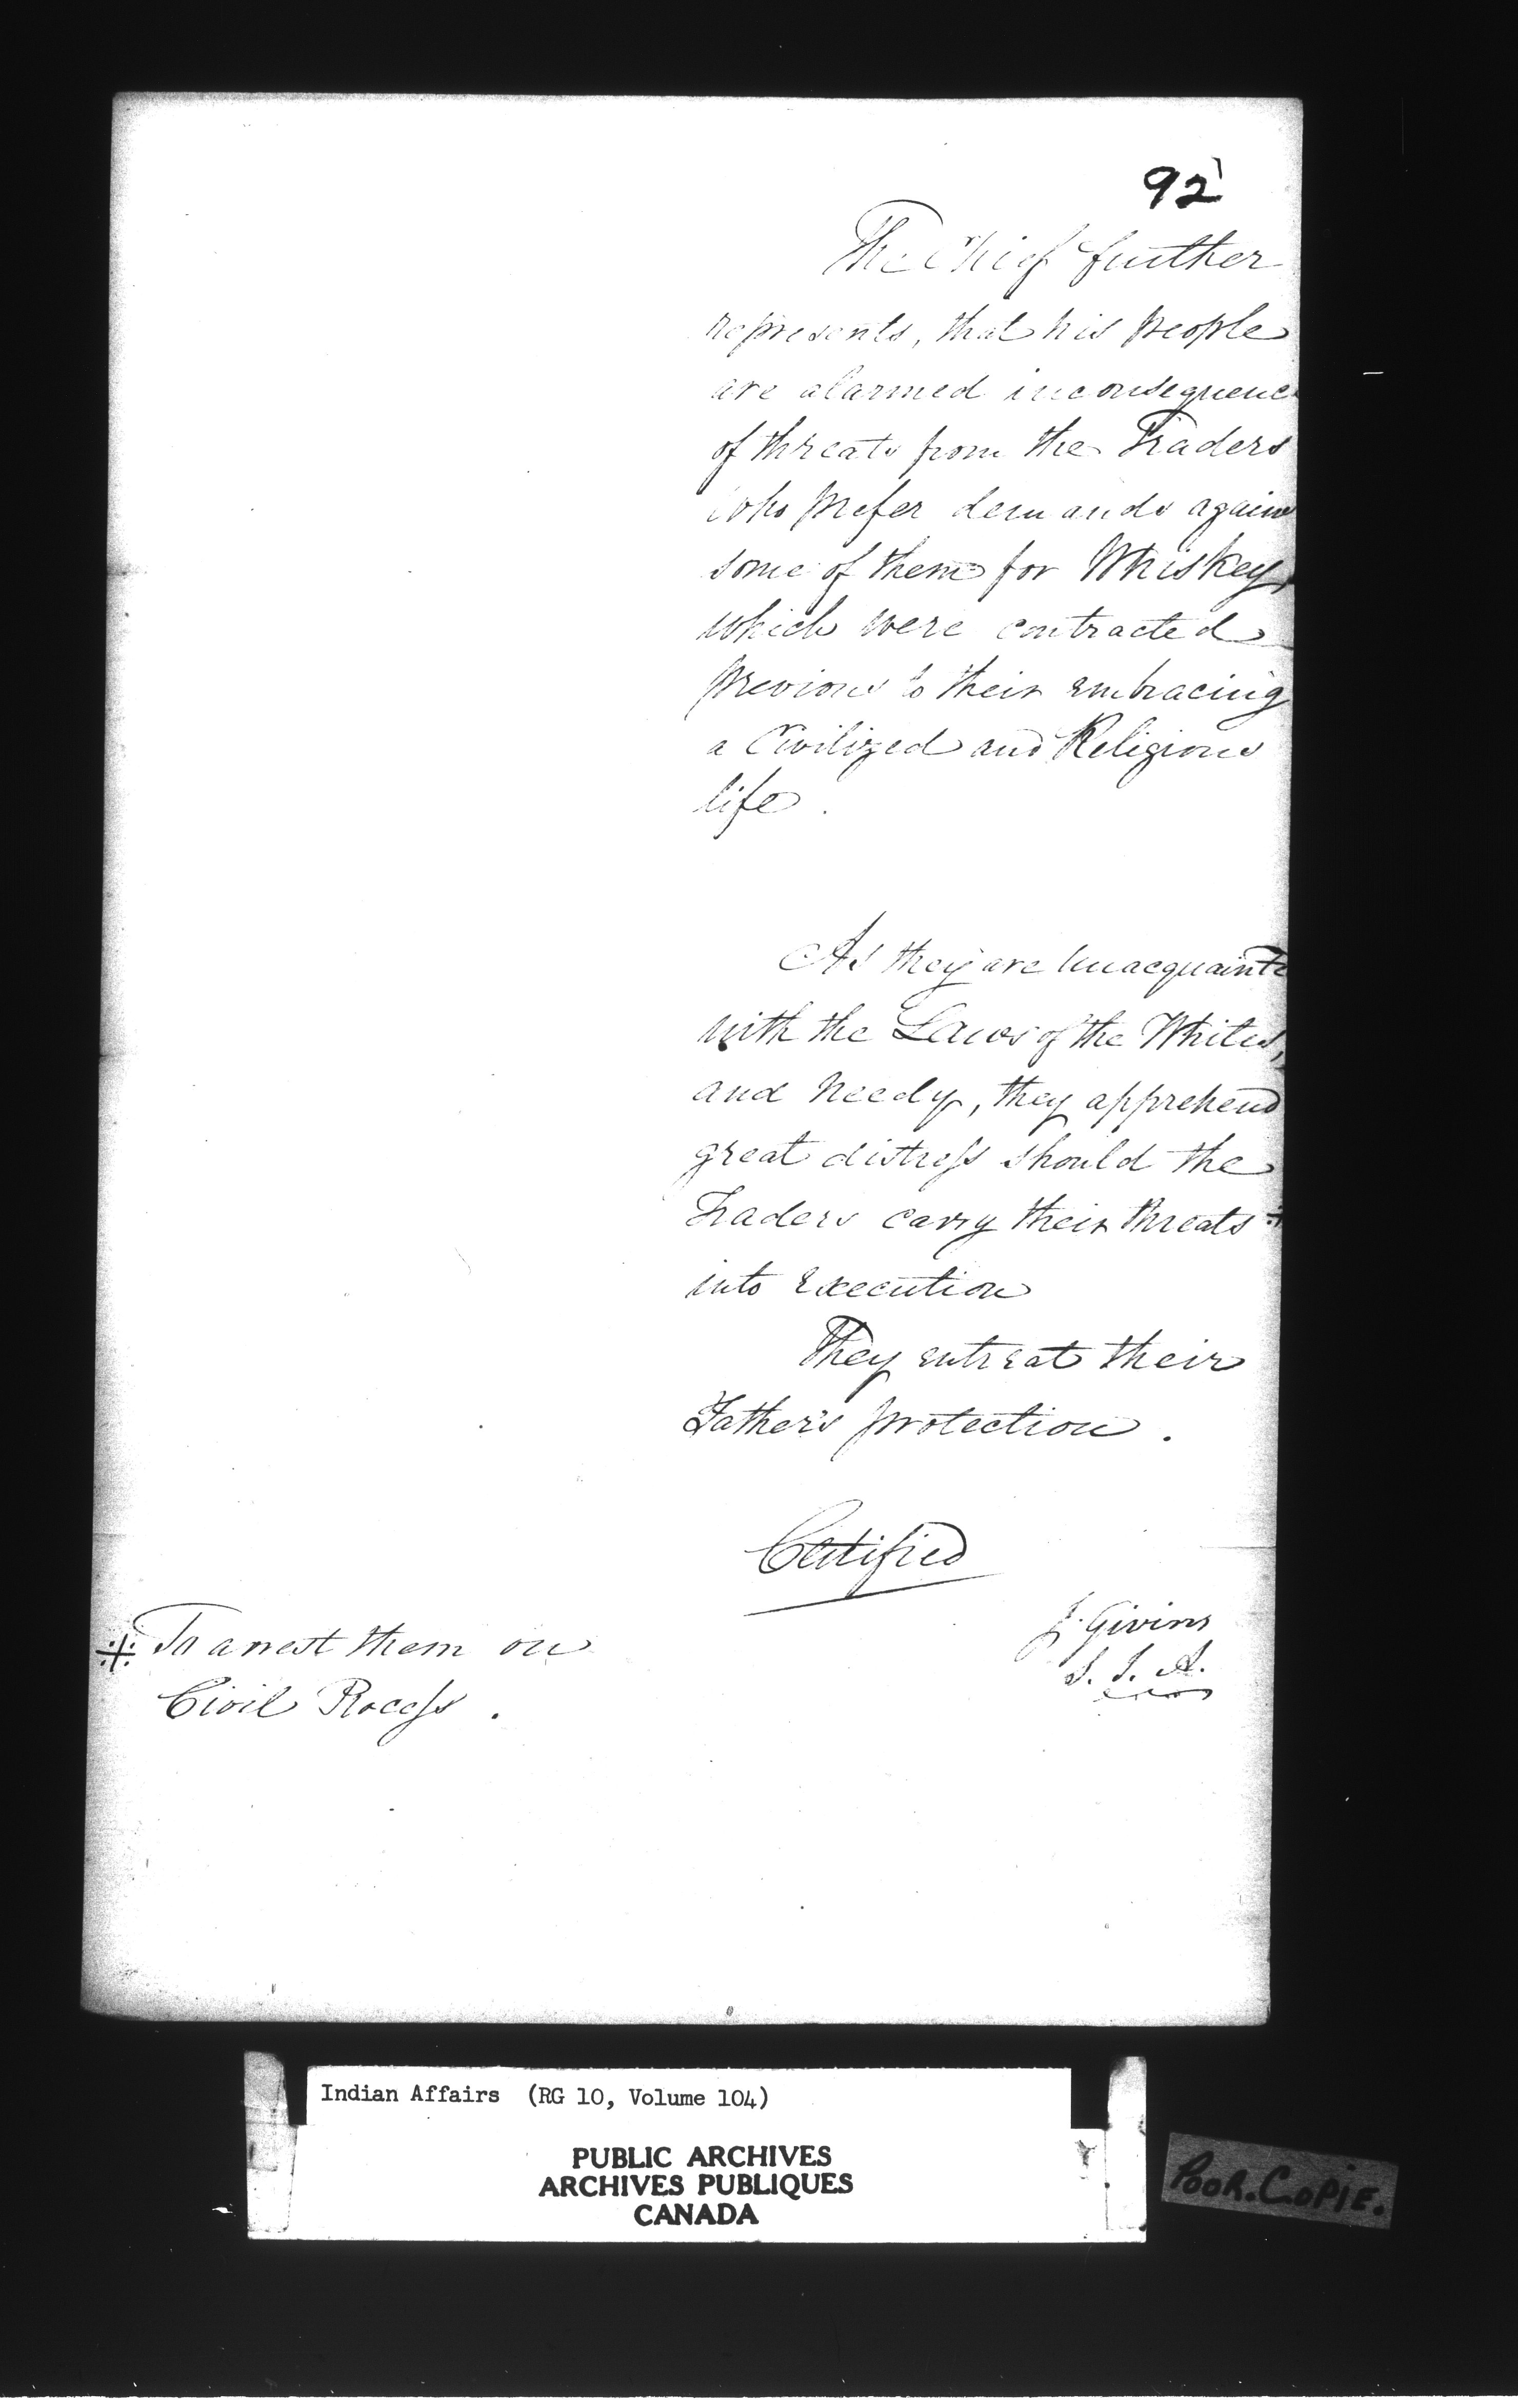 92
The Chief further
represents, that his people
are alarmed in consequence
of threats from the Traders
who prefer demands agains
some of them for Whiskey,
which were contracted
previous to their embracing
a Civilized and Religious
life.
As they are Unacquainte
with the Laws of the Whites,
and needy, they apprehend
great distress should the
Traders carry their threats ⁜
into execution
They entreat their
Father's protection.
Certified
J. Givins
S. I. A.
⁜ To arrest them on
Civil Process.
Indian Affairs (RG 10, Volume 104)
PUBLIC ARCHIVES
ARCHIVES PUBLIQUES
CANADA
POOR.COPIE.